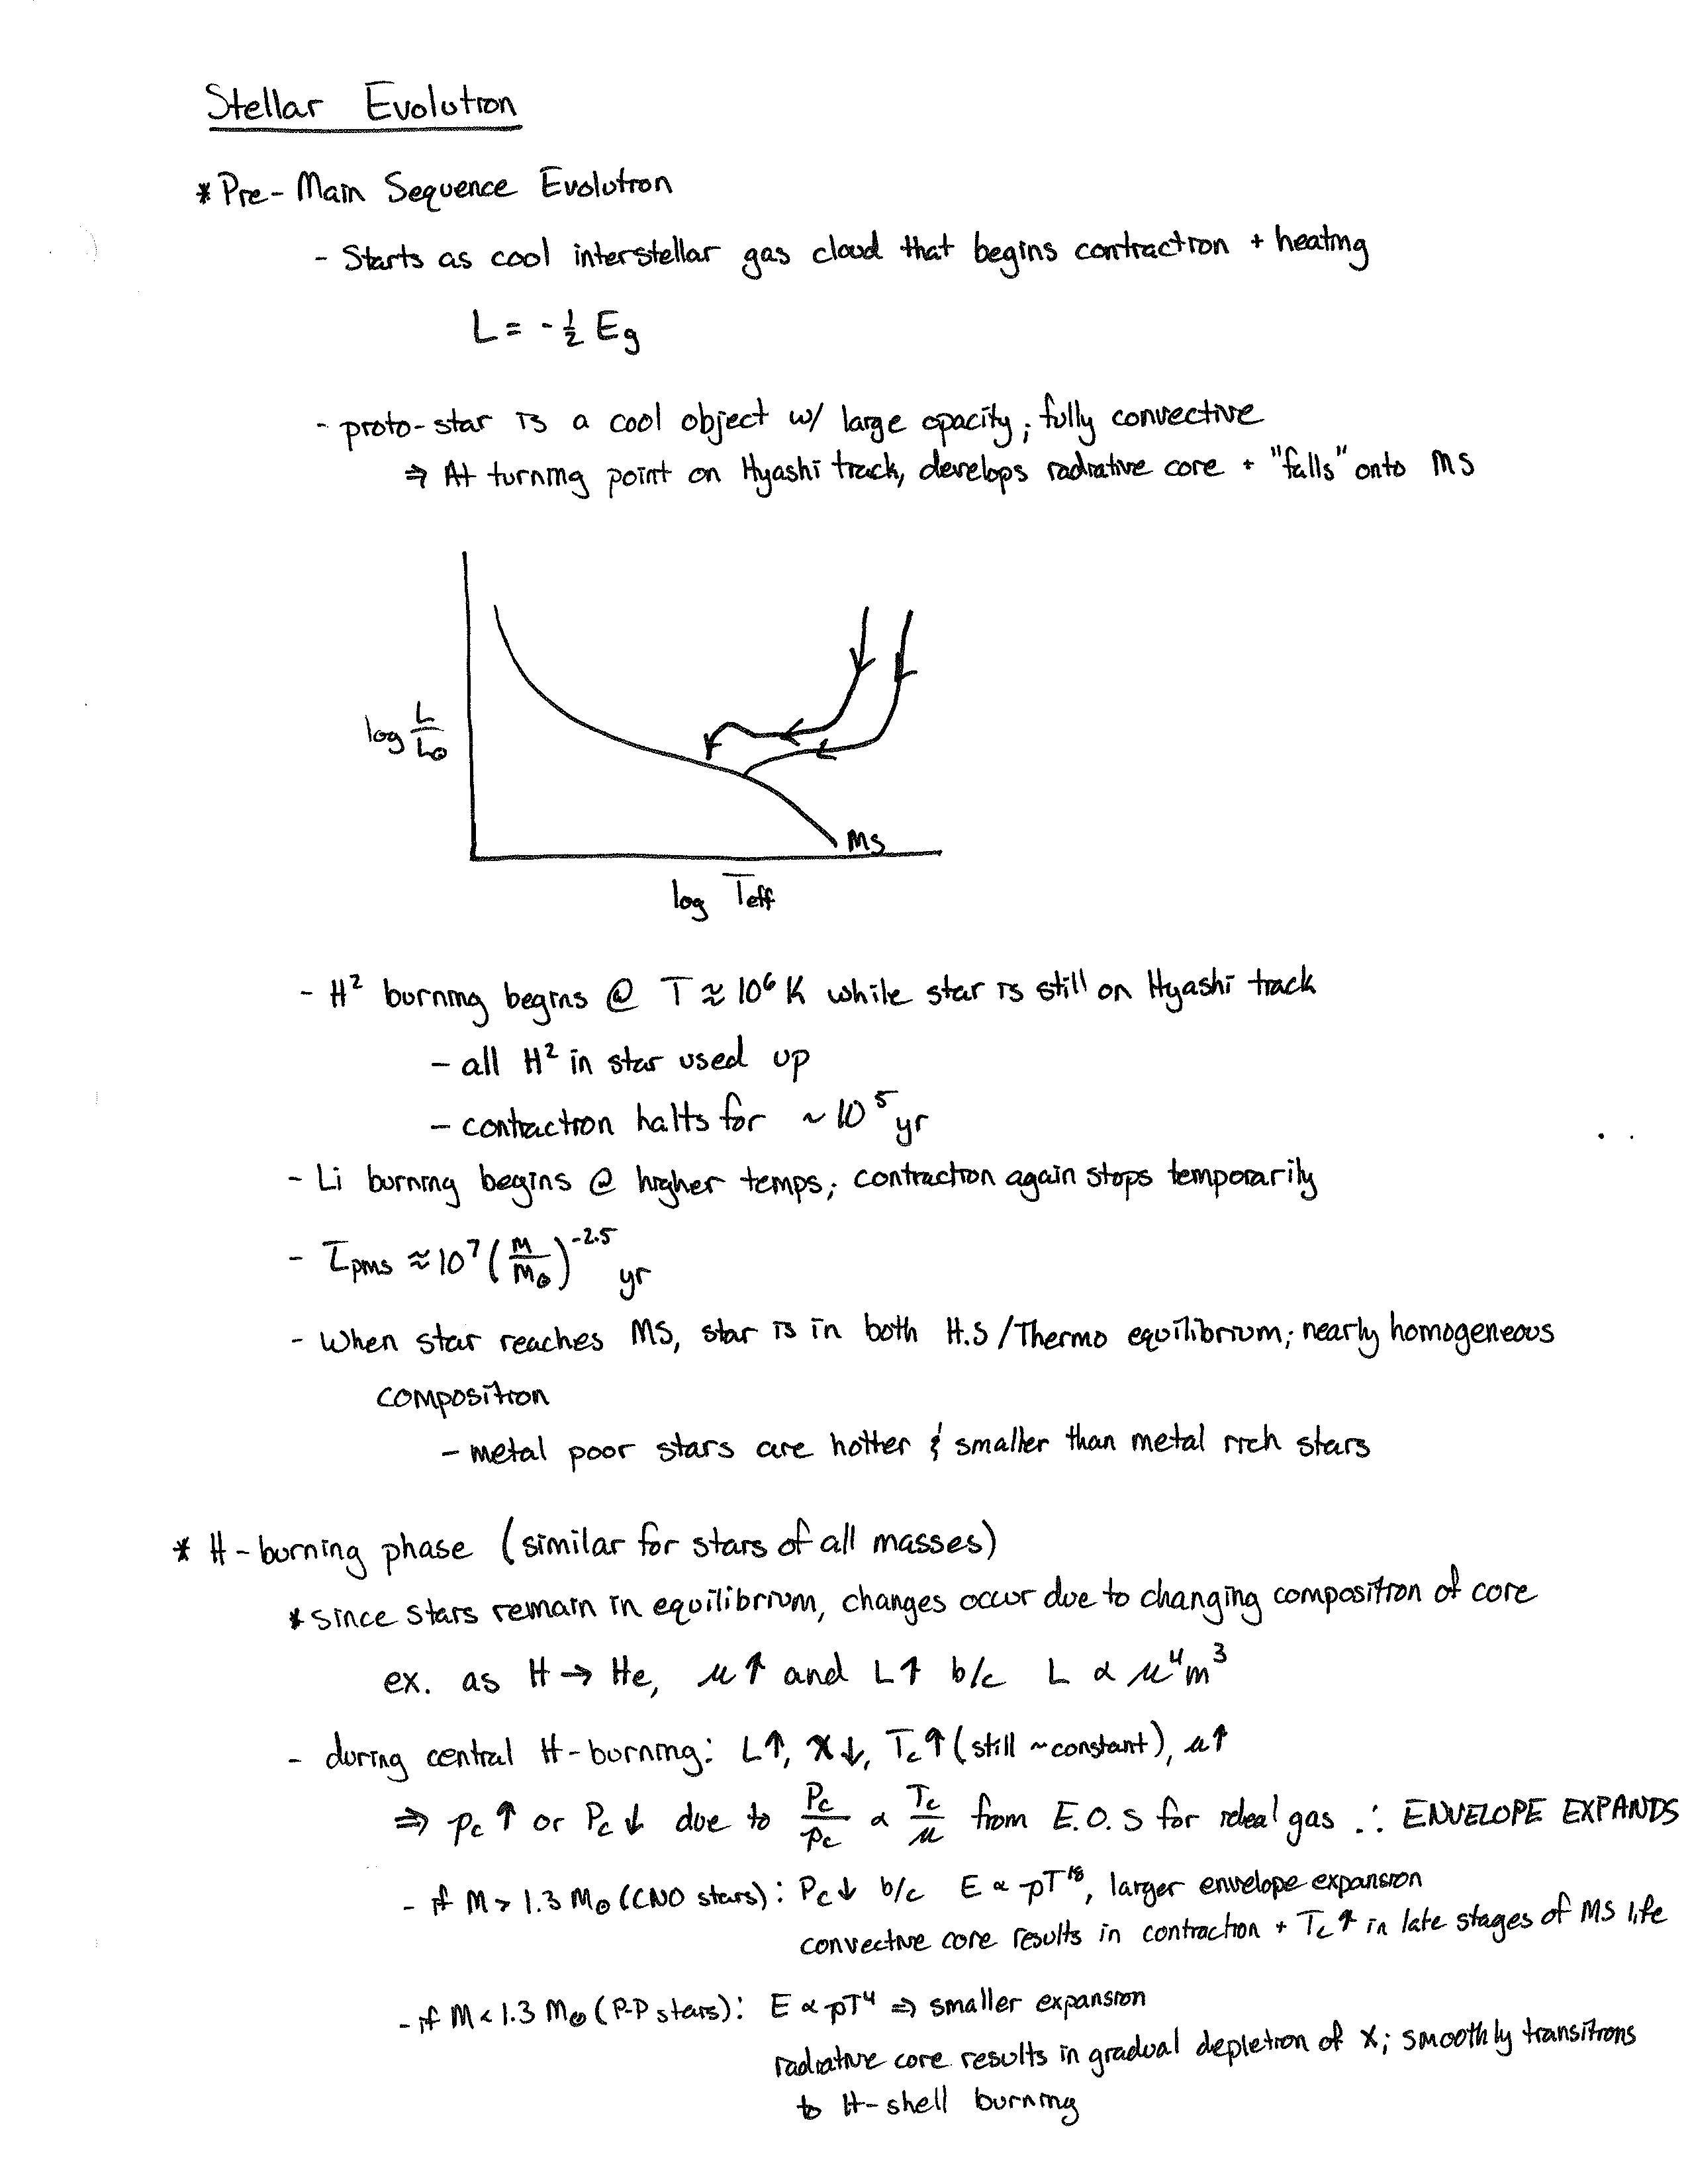 Stellar Evolution
* Pre-Main Sequence Evolution
- Starts as cool interstellar gas cloud that begins contraction + heating
L = -½ Eg
- proto-star is a cool object w/ large opacity; fully convective
⇒ At turning point on Hyashi track, develops radiative core + "falls" onto MS
log L/L⊙
MS
log Teff
- H² burning begins @ T ≈ 10⁶ K while star is still on Hyashi track
- all H² in star used up
- contraction halts for ~10⁵ yr
- Li burning begins @ higher temps; contraction again stops temporarily
- τpms ≈ 10⁷ (M/M⊙)^-2.5 yr
- When star reaches MS, star is in both H.S / Thermo equilibrium; nearly homogeneous
composition
- metal poor stars are hotter & smaller than metal rich stars
* H-burning phase (similar for stars of all masses)
* since stars remain in equilibrium, changes occur due to changing composition of core
ex. as H → He, μ↑ and L↑ b/c L ∝ μ⁴m³
- during central H-burning: L↑, X↓, Tc↑ (still ~constant), μ↑
⇒ ρc↑ or Pc↓ due to Pc/ρc ∝ Tc/μ from E.O.S for ideal gas ∴ ENVELOPE EXPANDS
- if M > 1.3 M⊙ (CNO stars): Pc↓ b/c E ∝ ρT¹⁸, larger envelope expansion
convective core results in contraction + Tc↑ in late stages of MS life
- if M < 1.3 M⊙ (P-P stars): E ∝ ρT⁴ ⇒ smaller expansion
radiative core results in gradual depletion of X; smoothly transitions
to H-shell burning